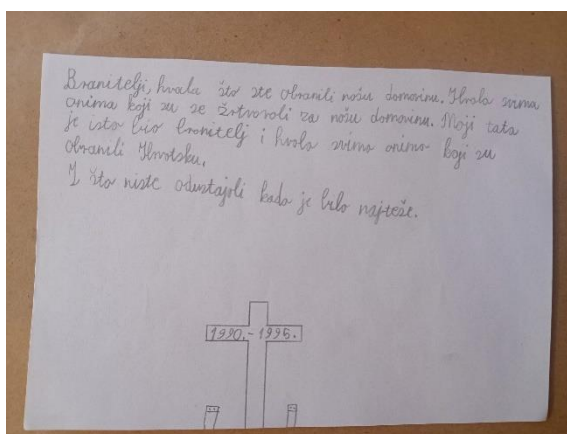 Branitelji, hvala što ste obranili našu domovinu. Hvala svima
onima koji su se žrtvovali za našu domovinu. Moji tata
je isto bio branitelj i hvala svima onima koji su
obranili Hrvatsku.
I što niste odustajali kada je bilo najteže.
1990.-1995.